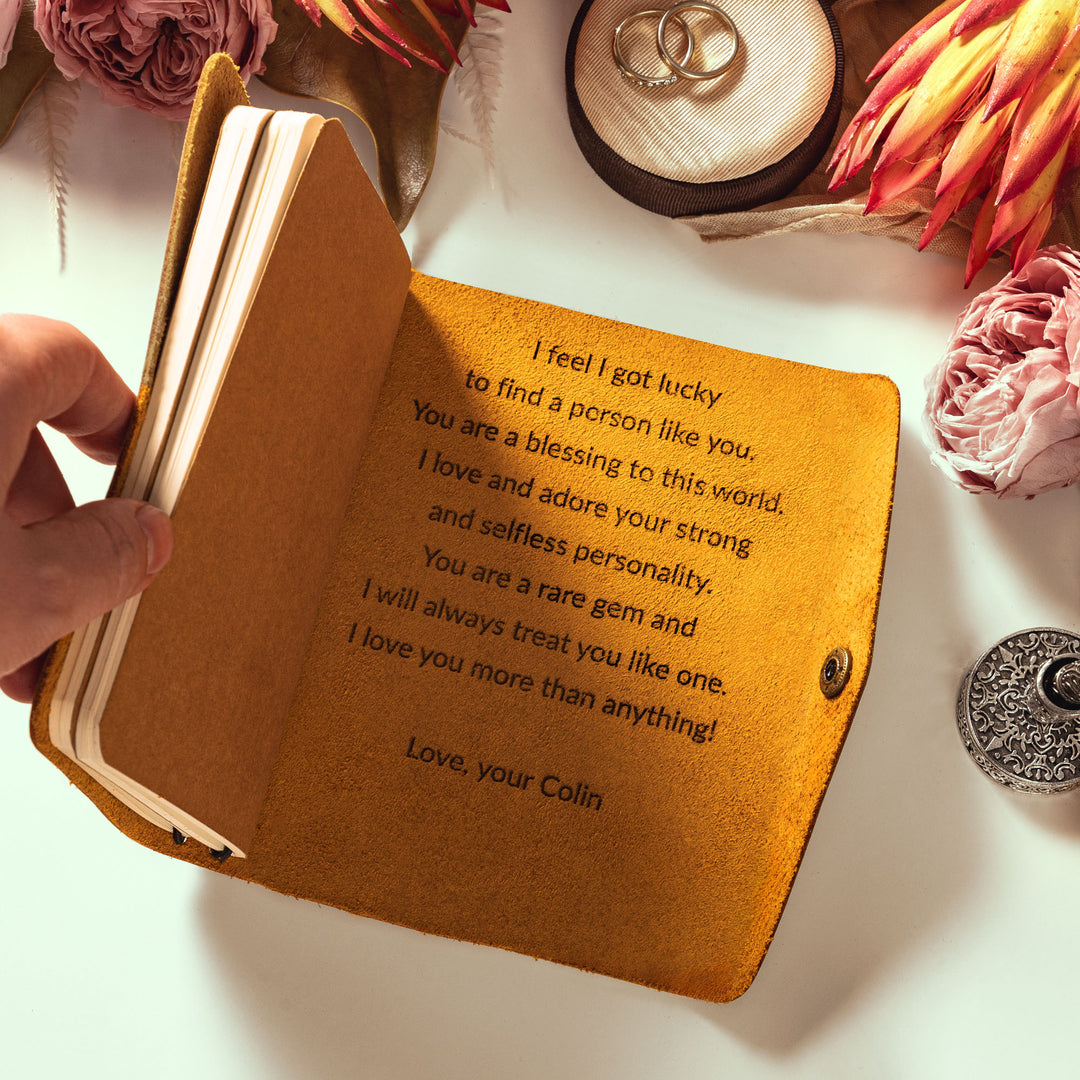 I feel I got lucky
to find a person like you.
You are a blessing to this world.
I love and adore your strong
and selfless personality.
You are a rare gem and
I will always treat you like one.
I love you more than anything!
Love, your Colin